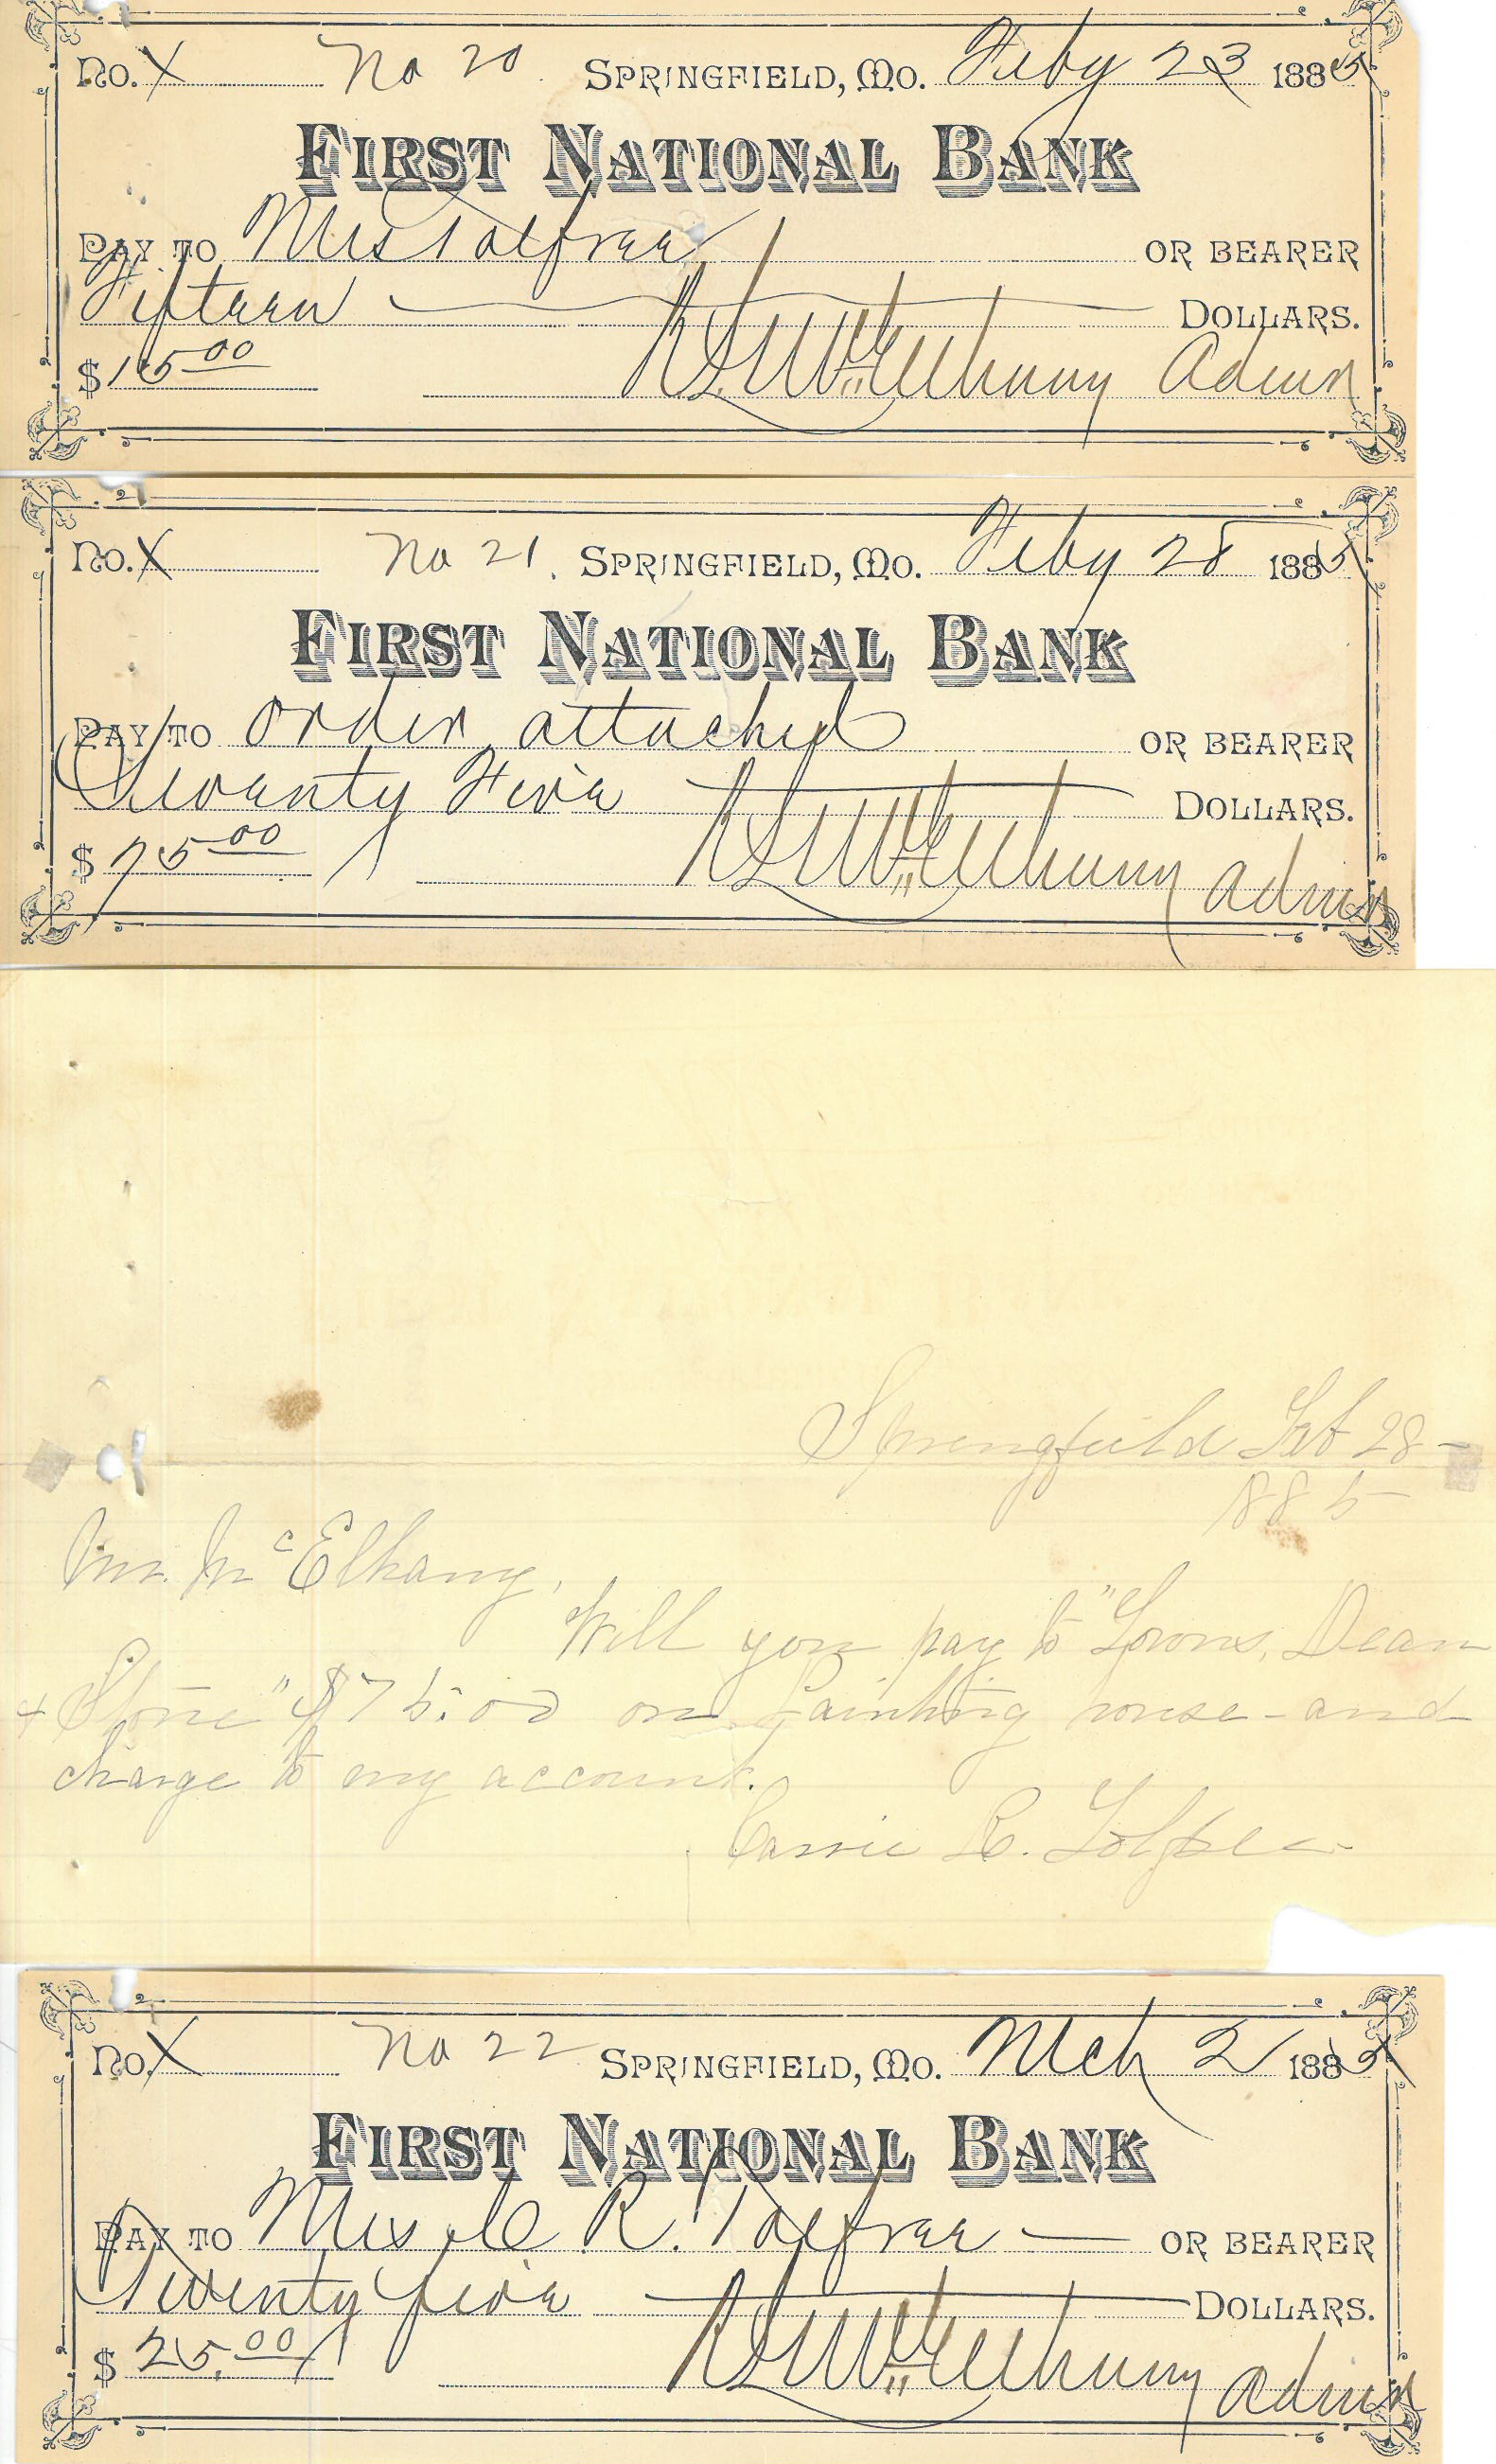 No. X No 20 Springfield, Mo. Feby 23 1885
First National Bank
Pay to Mrs Tolfree or bearer
Fifteen Dollars.
$15.00 McElhany Admr
No. X No 21. Springfield, Mo. Feby 28 1885
First National Bank
Pay to order attached or bearer
Seventy Five Dollars.
$75.00 McElhany Admr
Springfield Feb 28-
1885
Mr. McElhany,
Will you pay to "Lyons, Dean
+ Stone" $75.00 on painting house - and
charge to my account.
Carrie R. Tolfree
No. X No 22 Springfield, Mo. Mch 2 1885
First National Bank
Pay to Mrs C R. Tolfree or bearer
Twenty five Dollars.
$25.00 McElhany Admr